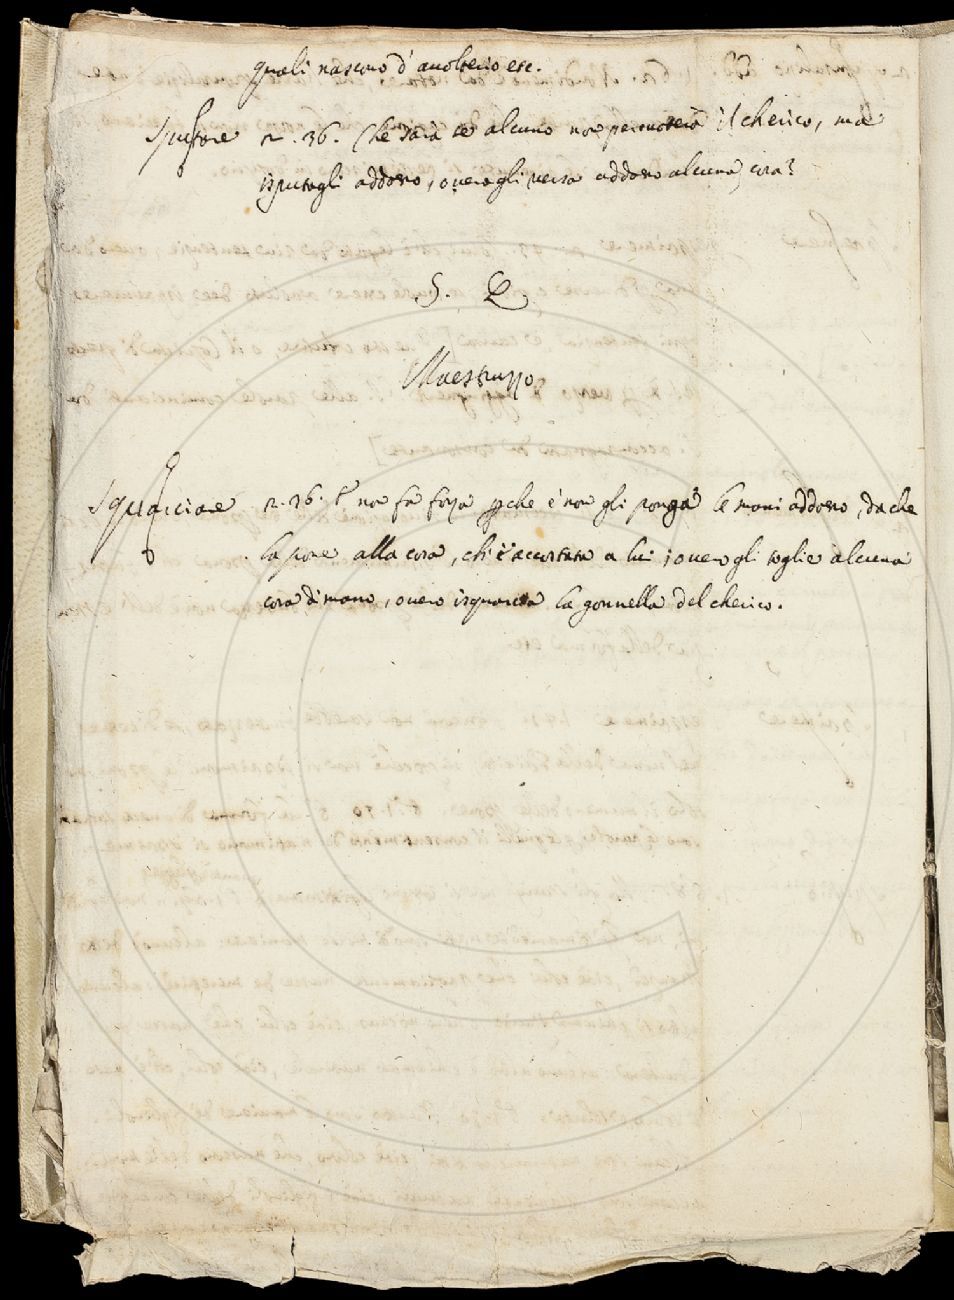 quali nascono d'avolterio etc.
Sputare 2. 36. Che sarà se alcuno non percuoterà il cherico, mà
isputagli addosso, overo gli versa addosso alcuna cosa?
S. Q
Maestruzzo
Squarciare 2. 36. E non fa forza perche e' non gli ponga le mani addosso, da che
la pone alla cosa, ch'è accostata a lui; overo gli toglie alcuna
cosa di mano, overo isquarcia la gonnella del cherico.